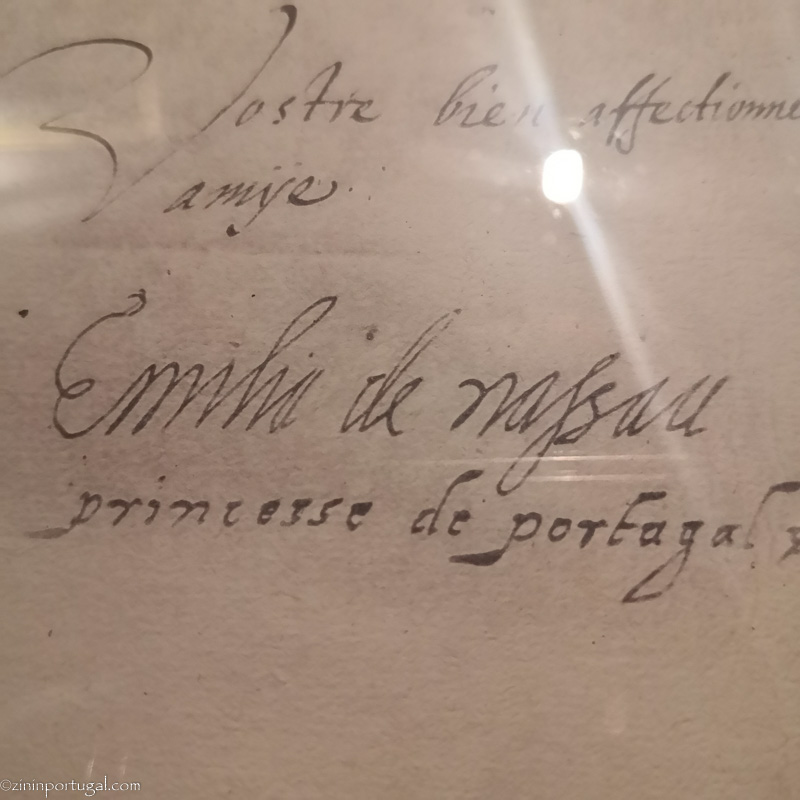 Vostre bien affectionne
amÿe
Emilia de nassau
princesse de portugal
©zininportugal.com